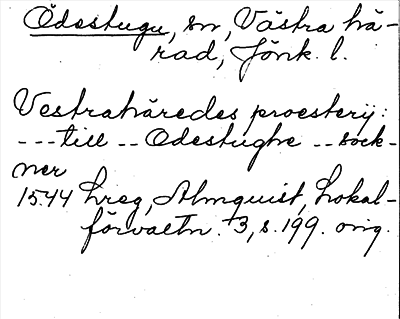 Ödestugu, sn, Västra hä-
rad, Jönk. l.
Vestrahäredes proesterij:
---till -- Odestughe -- sock-
ner
1544 Lreg, Almquist, Lokal-
förvaltn. 3, s. 199. orig.